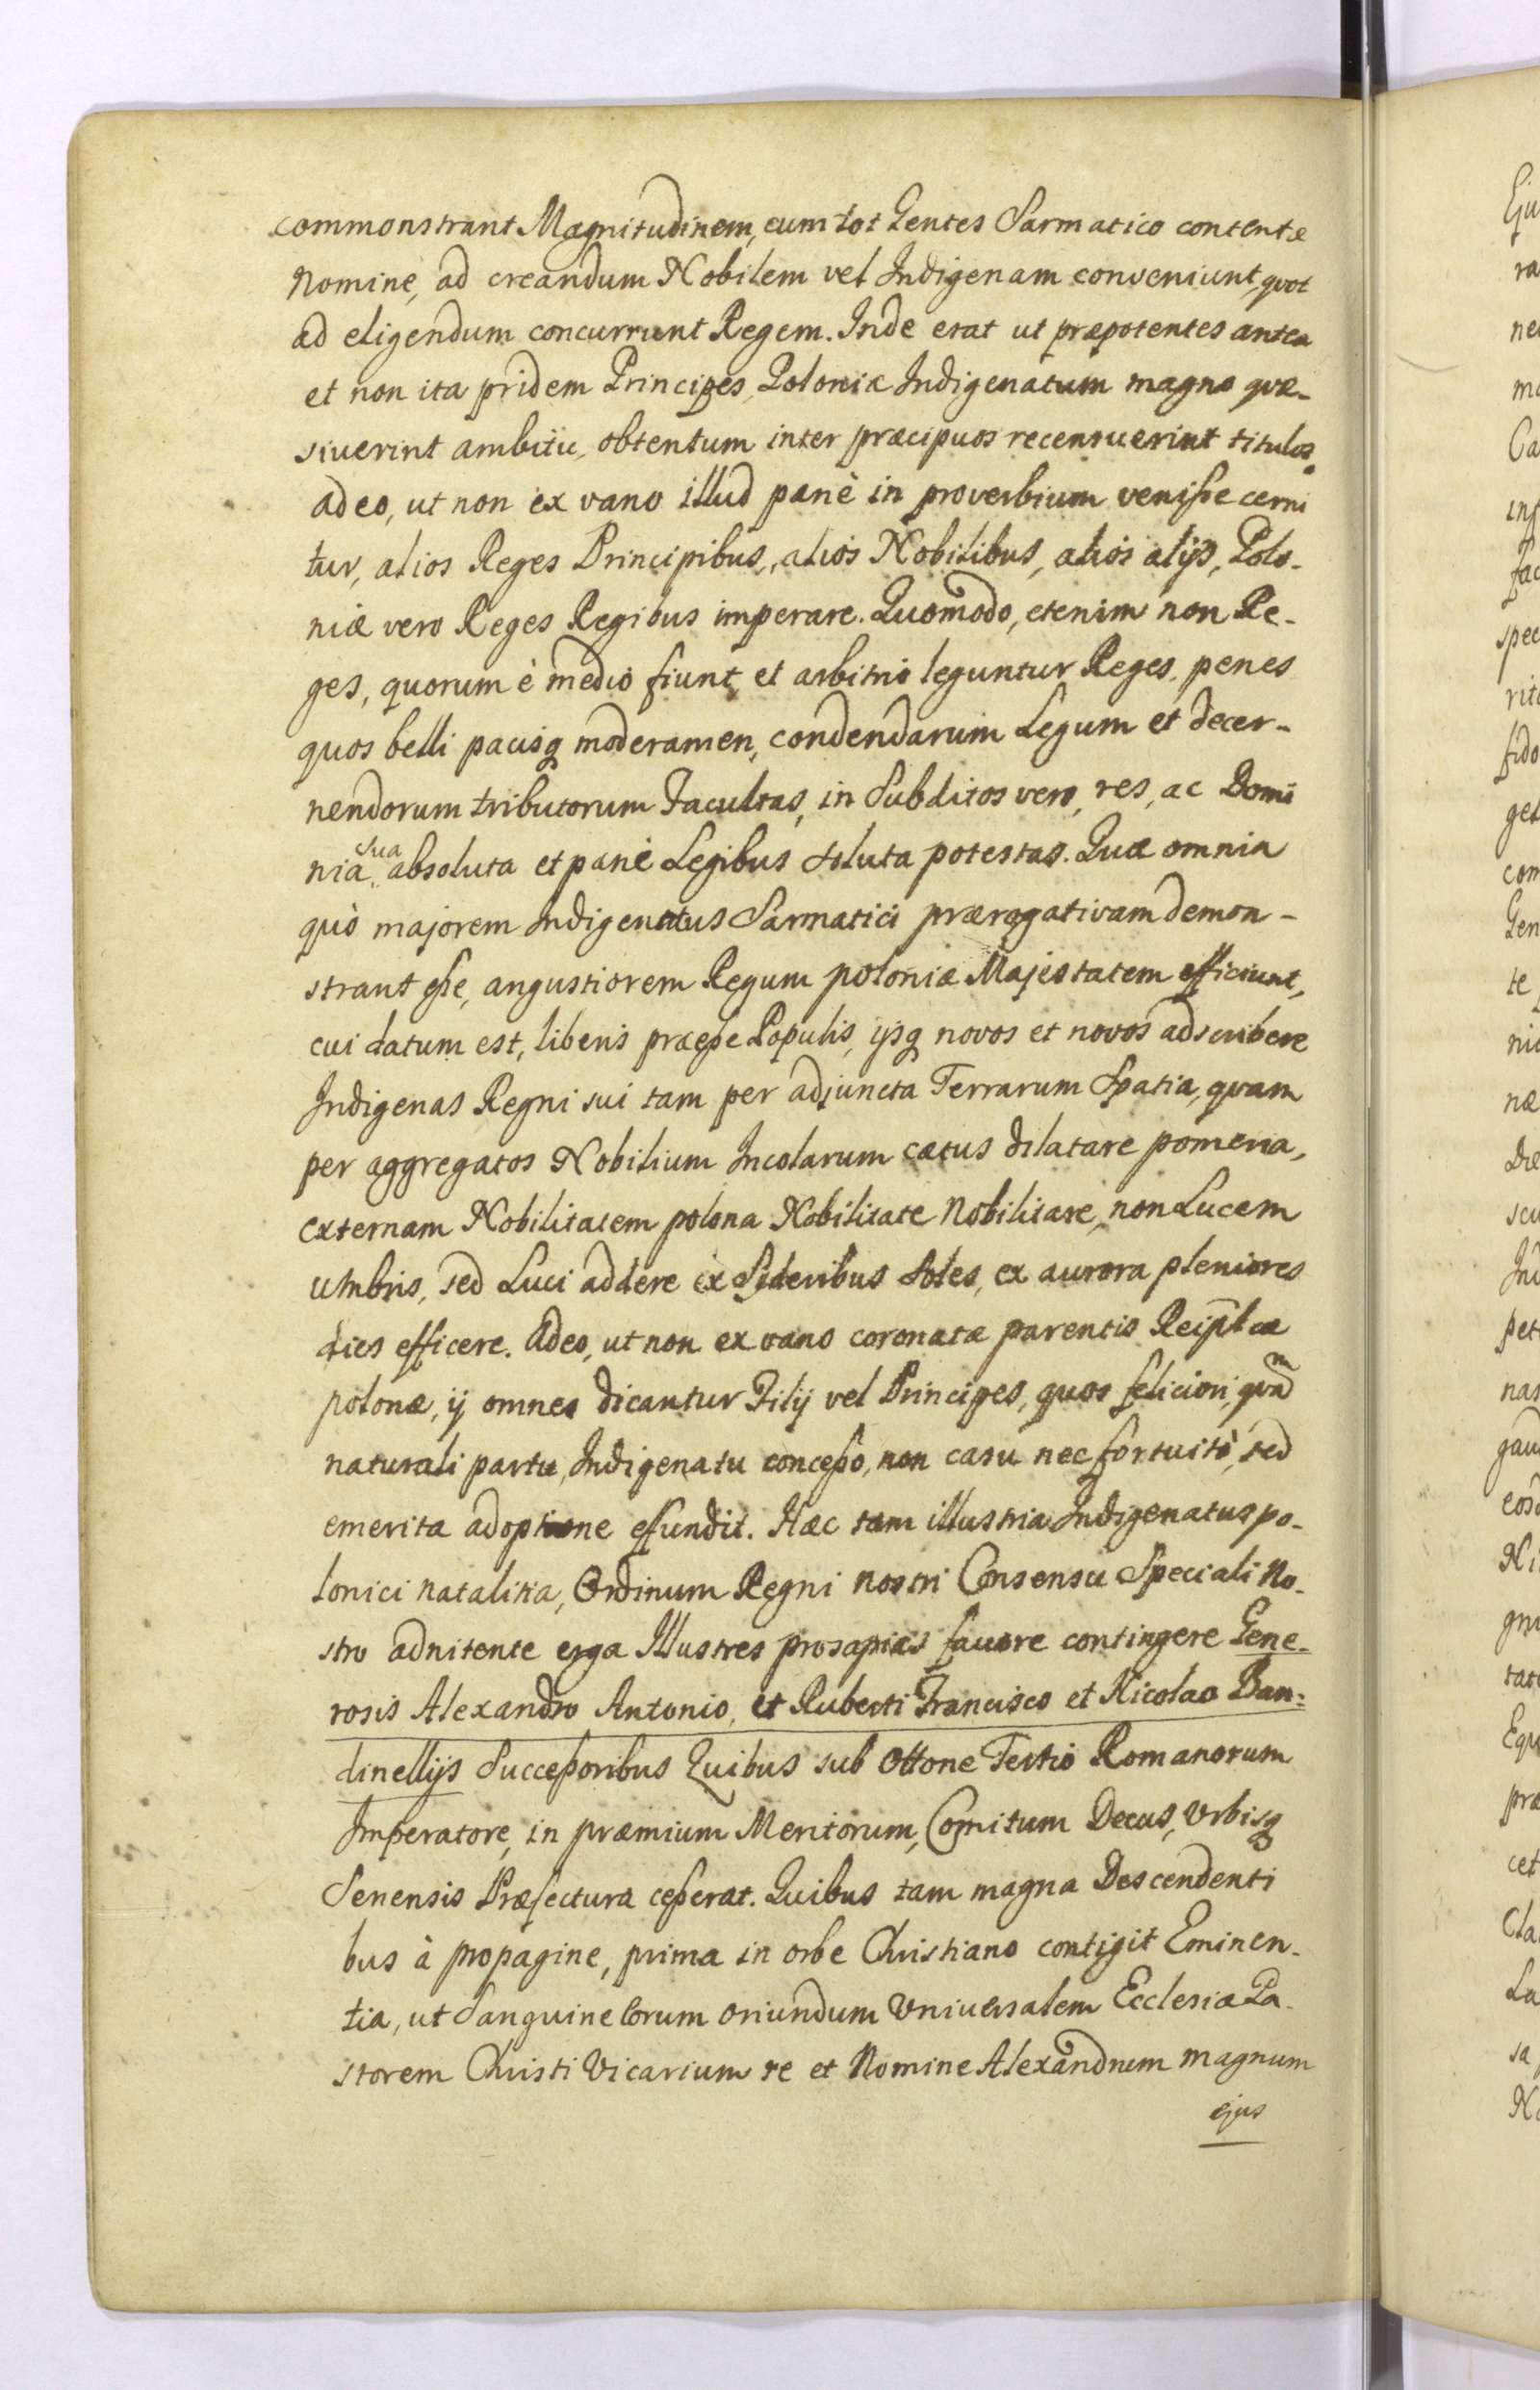 commonstrant Magnitudinem, cum tot Gentes Sarmatico contentæ
Nomine, ad creandum Nobilem vel Indigenam conveniunt, quot
ad eligendum concurrunt Regem. Inde erat ut præpotentes antea
et non ita pridem Principes, Poloniæ Indigenatum magno quæ-
siverint ambitu, obtentum inter præcipuos recensuerint titulos,
adeo, ut non ex vano illud panè in proverbium venisse cerni
tur, alios Reges Principibus, alios Nobilibus, alios alijs, Polo-
niæ vero Reges Regibus imperare. Quomodo, etenim non Re-
ges, quorum è medio fiunt, et arbitrio leguntur Reges, penes
quos belli pacisq moderamen, condendarum Legum et decer-
nendorum tributorum Facultas, in Subditos vero, res, ac Domi
nia sua absoluta et panè Legibus soluta potestas. Quæ omnia
quò majorem Indigenatus Sarmatici prærogativam demon-
strant esse, angustiorem Regum poloniæ Majestatem efficiunt,
cui datum est, liberis præesse Populis, ijsq novos et novos adscribere
Indigenas Regni sui tam per adjuncta Terrarum Spatia, quam
per aggregatos Nobilium Incolarum cætus dilatare pomeria,
externam Nobilitatem polona Nobilitate Nobilitare, non Lucem
Umbris, sed Luci addere ex Sideribus Soles, ex aurora pleniores
dies efficere. Adeo, ut non ex vano coronatæ parentis Reiplcæ
polonæ, ij omnes dicantur Filij vel Principes, quos feliciori, quam
naturali partu, Indigenatu concesso, non casu nec fortuitò, sed
emerita adoptione effundit. Hæc tam illustria Indigenatus po-
lonici natalitia, Ordinum Regni nostri Consensu Speciali No-
stro adnitente erga Illustres prosapias favore contingere Gene-
rosis Alexandro Antonio, et Ruberti Francisco et Nicolao Ban-
dinellijs Successoribus Quibus sub Ottone Tertio Romanorum
Imperatore, in præmium Meritorum, Comitum Decus, Urbisq
Senensis Præfectura cesserat. Quibus tam magna Descendenti
bus à propagine, prima in orbe Christiano contigit Eminen-
tia, ut Sanguine Eorum oriundum Universalem Ecclesiæ Pa-
storem Christi Vicarium re et Nomine Alexandrum magnum
ejus